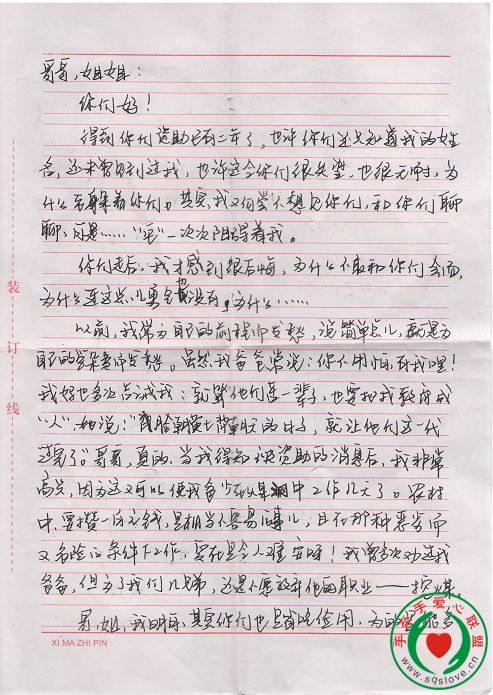 哥哥,姐姐:
你们好!
得到你们资助已有二年了,也许你们还只知道我的姓
名,还未曾见到过我,也许这令你们很失望,也很无奈,为
什么要躲着你们。其实,我又何尝不想见你们,和你们聊
聊,可是……“穷”一次次阻碍着我。
你们走后,我才感到很后悔,为什么不敢和你们会面,
为什么连这点儿勇气也没有,为什么……
以前,我常为自己的前程而发愁,说简单点儿,就是为
自己的学杂费而发愁。虽然我爸爸常说:你不用怕,有我哩!
我妈也多次告诫我:就算他们苦一辈子,也要把我教育成
“人”,她说:“面朝黄土背朝天的日子,就让他们这一代
过完了。”哥哥,真的,当我得知被资助的消息后,我非常
高兴,因为这又可以使我爸少在煤洞中工作几天了。农村
中,要攒一百元钱,是相当不容易的事儿,且在那种恶劣而
又危险的条件下工作,实在是令人难安呀!我曾多次劝过我
爸爸,但为了我们几兄弟,还是不愿放弃他的职业——挖煤。
哥,姐,我明白,其实你们也是省吃俭用,为的是
装
订
线
XI MA ZHI PIN
手牵手爱心联盟
www.sqslove.cn